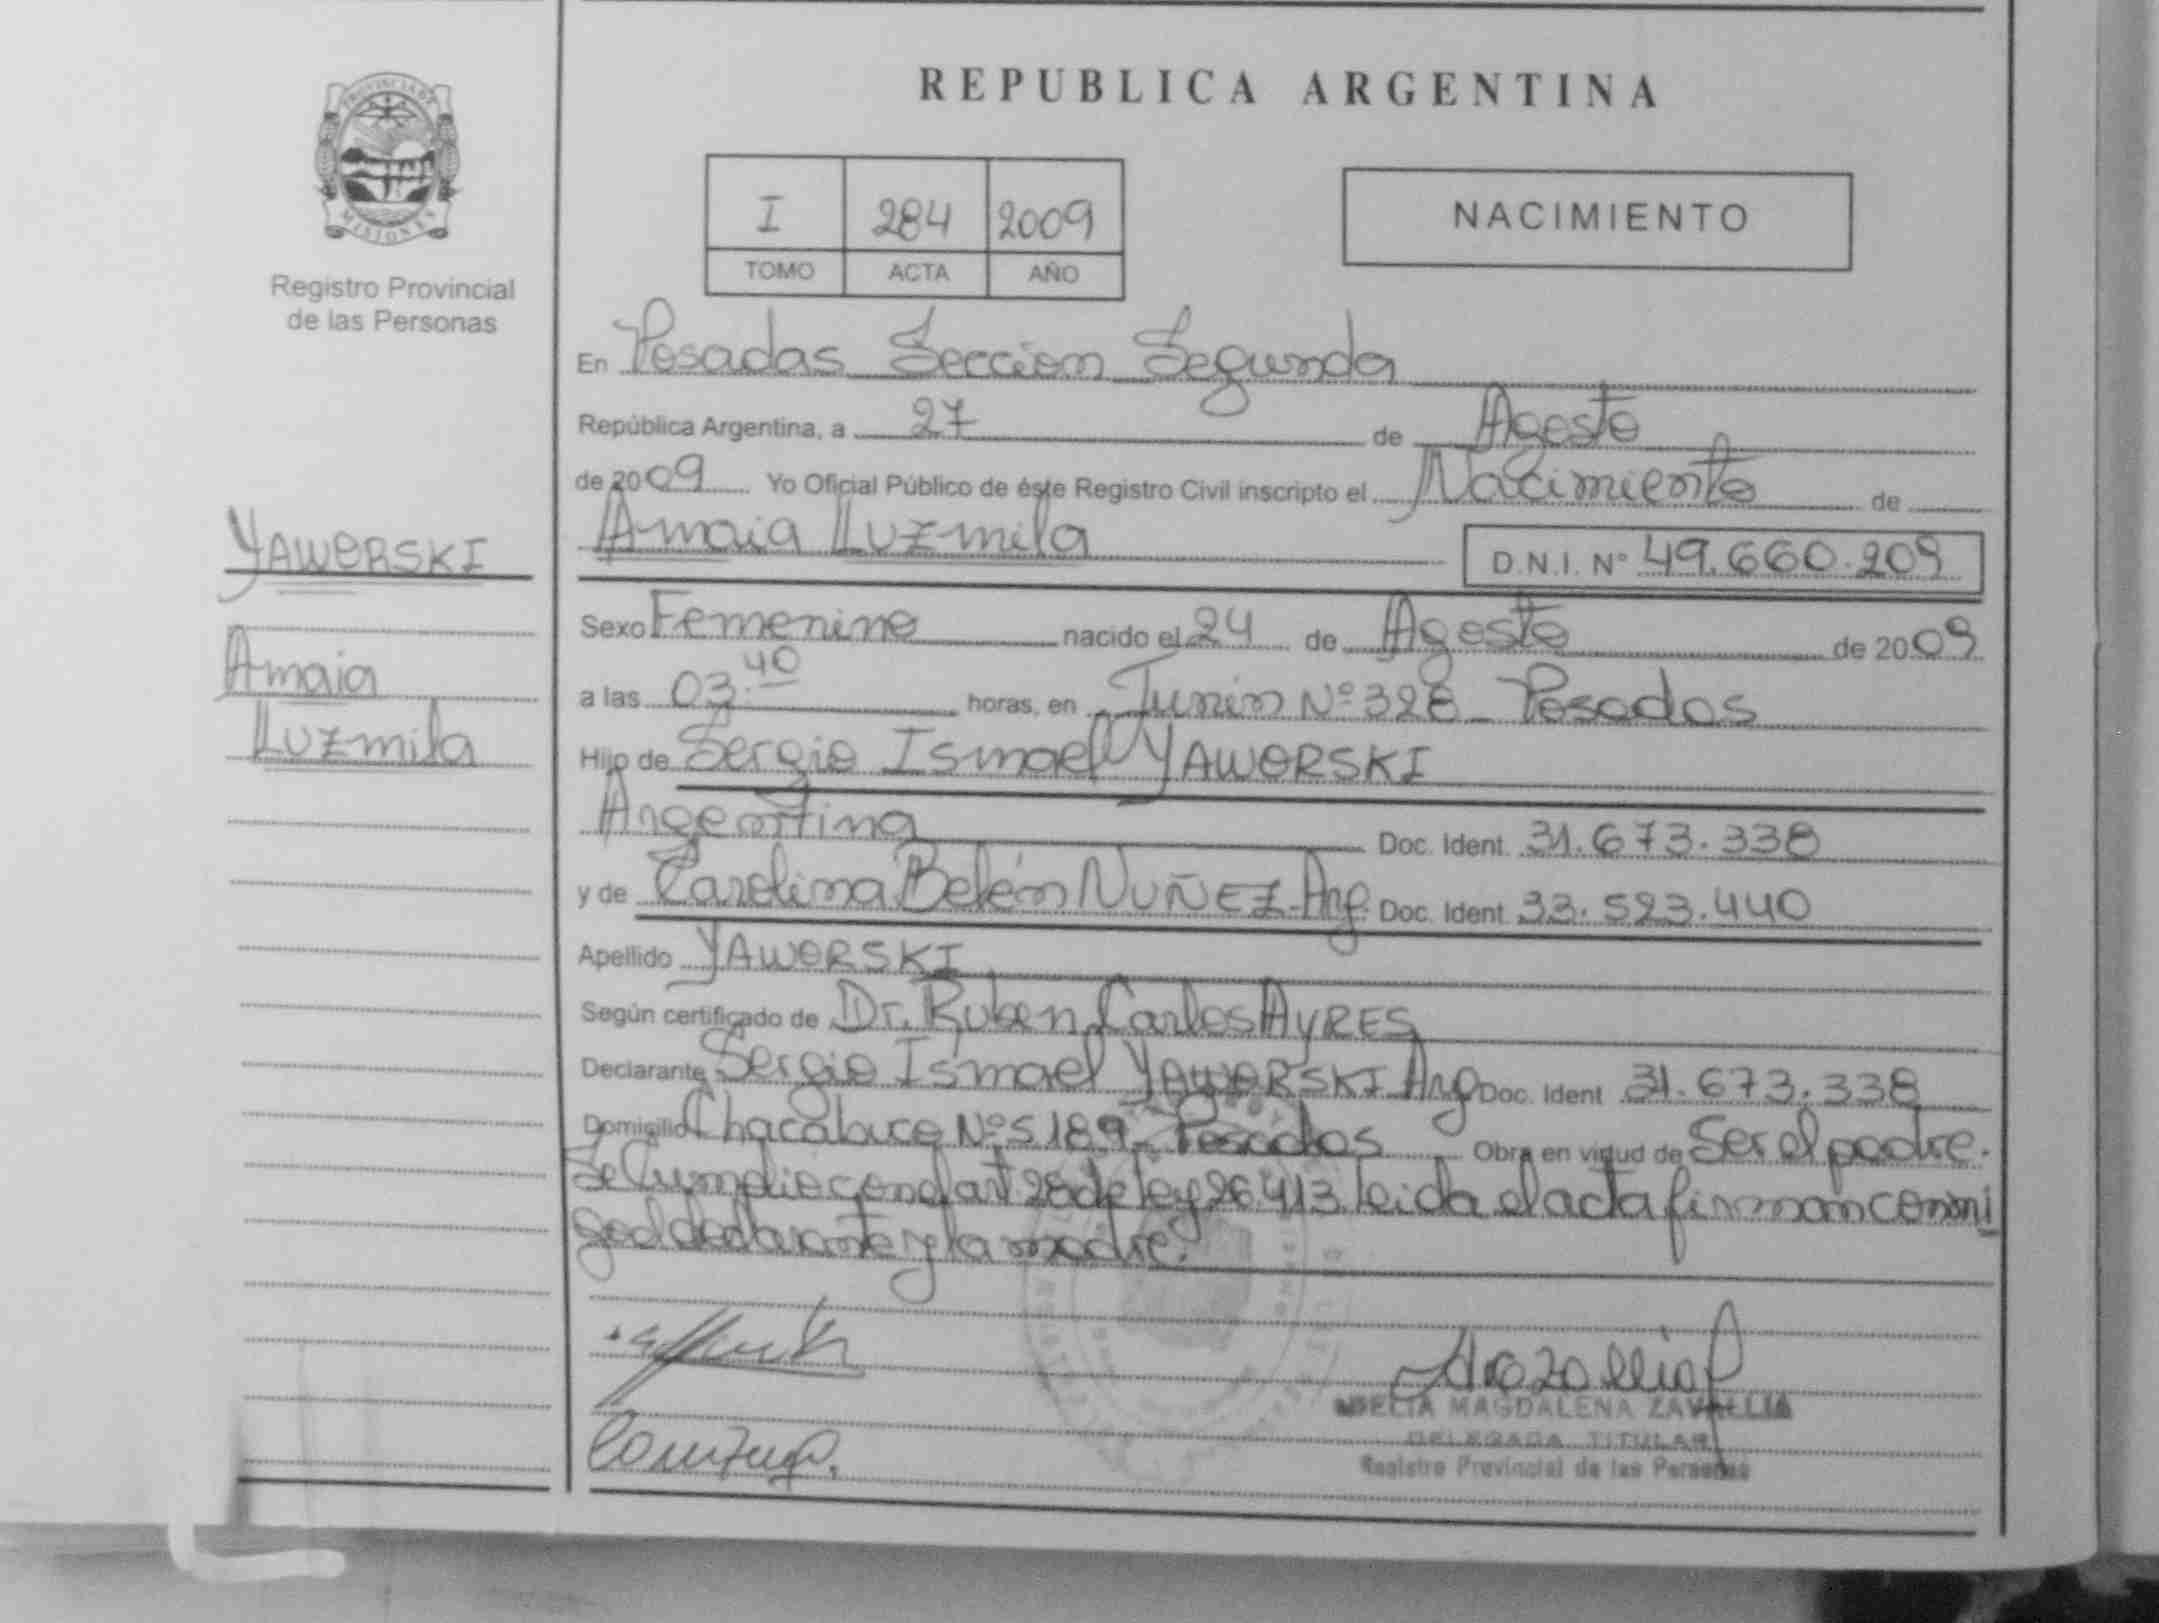 REPUBLICA ARGENTINA
PROVINCIA DE
MISIONES
Registro Provincial
de las Personas
I 284 2009
TOMO ACTA AÑO
NACIMIENTO
En Posadas Seccion Segunda
República Argentina, a 27 de Agosto
de 2009 Yo Oficial Público de éste Registro Civil inscripto el Nacimiento de
Amaia Luzmila D.N.I. Nº 49.660.209
YAWORSKI
Amaia
Luzmila
Sexo Femenino nacido el 24 de Agosto de 2009
a las 03.40 horas, en Junin Nº 328 - Posadas
Hijo de Sergio Ismael YAWORSKI
Argentina Doc. Ident. 31.673.338
y de Carolina Belén NUÑEZ-Arg. Doc. Ident. 33.523.440
Apellido YAWORSKI
Según certificado de Dr. Ruben Carlos AYRES
Declarante Sergio Ismael YAWORSKI Arg Doc. Ident 31.673.338
Domicilio Chacabuco Nº 5189- Posadas Obra en virtud de Ser el padre.
Se Cumplio con el art 28 de ley 26.413. leida el acta firman conmi
go el declarante y la madre.
DELIA MAGDALENA ZAVALLIA
DELEGADA TITULAR
Registro Provincial de las Personas